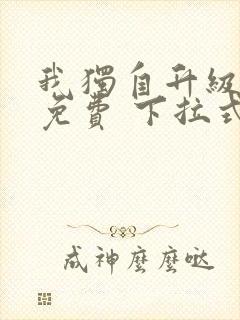 我獨自升級
免費 下拉式
成神麼麼噠